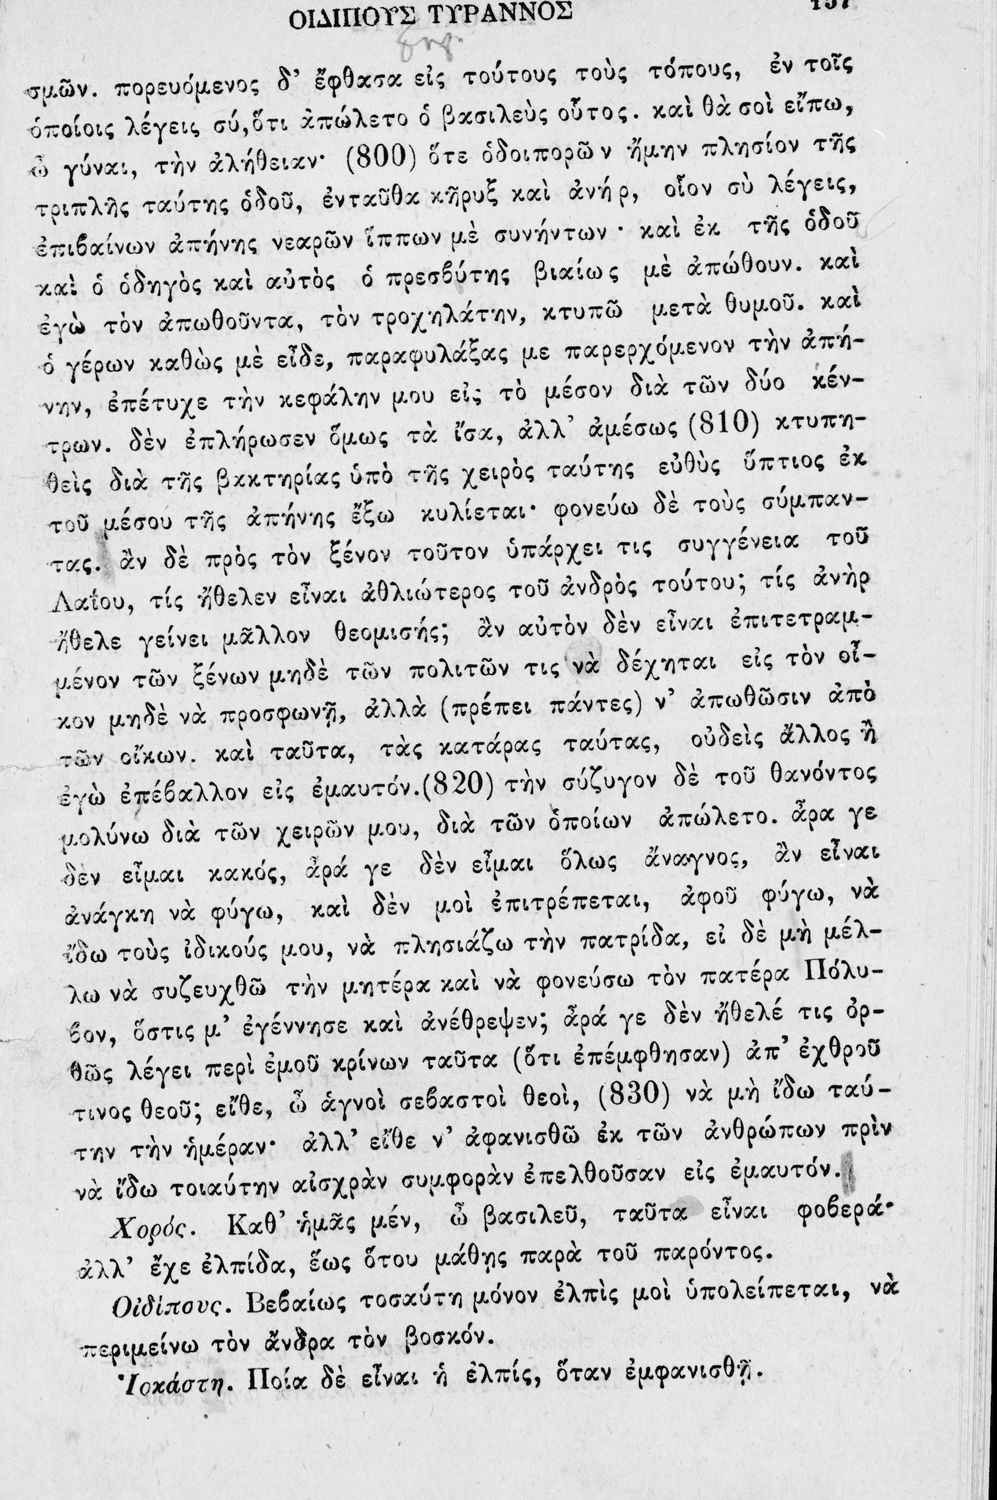 ΟΙΔΙΠΟΥΣ ΤΥΡΑΝΝΟΣ
σμῶν. πορευόμενος δ’ ἔφθασα εἰς τούτους τοὺς τόπους, ἐν τοῖς
ὁποίοις λέγεις σύ, ὅτι ἀπώλετο ὁ βασιλεὺς οὗτος. καὶ θὰ σοὶ εἴπω,
ὦ γύναι, τὴν ἀλήθειαν· (800) ὅτε ὁδοιπορῶν ἤμην πλησίον τῆς
τριπλῆς ταύτης ὁδοῦ, ἐνταῦθα κῆρυξ καὶ ἀνήρ, οἷον σὺ λέγεις,
ἐπιβαίνων ἀπήνης νεαρῶν ἵππων μὲ συνήντων · καὶ ἐκ τῆς ὁδοῦ
καὶ ὁ ὁδηγὸς καὶ αὐτὸς ὁ πρεσβύτης βιαίως μὲ ἀπώθουν. καὶ
ἐγὼ τὸν ἀπωθοῦντα, τὸν τροχηλάτην, κτυπῶ μετὰ θυμοῦ. καὶ
ὁ γέρων καθὼς μὲ εἶδε, παραφυλάξας με παρερχόμενον τὴν ἀπή-
νην, ἐπέτυχε τὴν κεφάλην μου εἰς τὸ μέσον διὰ τῶν δύο κέν-
τρων. δὲν ἐπλήρωσεν ὅμως τὰ ἴσα, ἀλλ’ ἀμέσως (810) κτυπη-
θεὶς διὰ τῆς βακτηρίας ὑπὸ τῆς χειρὸς ταύτης εὐθὺς ὕπτιος ἐκ
τοῦ μέσου τῆς ἀπήνης ἔξω κυλίεται· φονεύω δὲ τοὺς σύμπαν-
τας. ἂν δὲ πρὸς τὸν ξένον τοῦτον ὑπάρχει τις συγγένεια τοῦ
Λαΐου, τίς ἤθελεν εἶναι ἀθλιώτερος τοῦ ἀνδρὸς τούτου; τίς ἀνὴρ
ἤθελε γείνει μᾶλλον θεομισής; ἂν αὐτὸν δὲν εἶναι ἐπιτετραμ-
μένον τῶν ξένων μηδὲ τῶν πολιτῶν τις νὰ δέχηται εἰς τὸν οἶ-
κον μηδὲ νὰ προσφωνῇ, ἀλλὰ (πρέπει πάντες) ν’ ἀπωθῶσιν ἀπὸ
τῶν οἴκων. καὶ ταῦτα, τὰς κατάρας ταύτας, οὐδεὶς ἄλλος ἢ
ἐγὼ ἐπέβαλλον εἰς ἐμαυτόν. (820) τὴν σύζυγον δὲ τοῦ θανόντος
μολύνω διὰ τῶν χειρῶν μου, διὰ τῶν ὁποίων ἀπώλετο. ἆρα γε
δὲν εἶμαι κακός, ἆρά γε δὲν εἶμαι ὅλως ἄναγνος, ἂν εἶναι
ἀνάγκη νὰ φύγω, καὶ δὲν μοὶ ἐπιτρέπεται, ἀφοῦ φύγω, νὰ
ἴδω τοὺς ἰδικούς μου, νὰ πλησιάζω τὴν πατρίδα, εἰ δὲ μὴ μέλ-
λω νὰ συζευχθῶ τὴν μητέρα καὶ νὰ φονεύσω τὸν πατέρα Πόλυ-
βον, ὅστις μ’ ἐγέννησε καὶ ἀνέθρεψεν; ἆρά γε δὲν ἤθελέ τις ὀρ-
θῶς λέγει περὶ ἐμοῦ κρίνων ταῦτα (ὅτι ἐπέμφθησαν) ἀπ’ ἐχθροῦ
τινος θεοῦ; εἴθε, ὦ ἁγνοὶ σεβαστοὶ θεοὶ, (830) νὰ μὴ ἴδω ταύ-
την τὴν ἡμέραν· ἀλλ’ εἴθε ν’ ἀφανισθῶ ἐκ τῶν ἀνθρώπων πρὶν
νὰ ἴδω τοιαύτην αἰσχρὰν συμφορὰν ἐπελθοῦσαν εἰς ἐμαυτόν.
Χορός. Καθ’ ἡμᾶς μέν, ὦ βασιλεῦ, ταῦτα εἶναι φοβερά·
ἀλλ’ ἔχε ἐλπίδα, ἕως ὅτου μάθῃς παρὰ τοῦ παρόντος.
Οἰδίπους. Βεβαίως τοσαύτη μόνον ἐλπὶς μοὶ ὑπολείπεται, νὰ
περιμείνω τὸν ἄνδρα τὸν βοσκόν.
Ἰοκάστη. Ποία δὲ εἶναι ἡ ἐλπίς, ὅταν ἐμφανισθῇ.